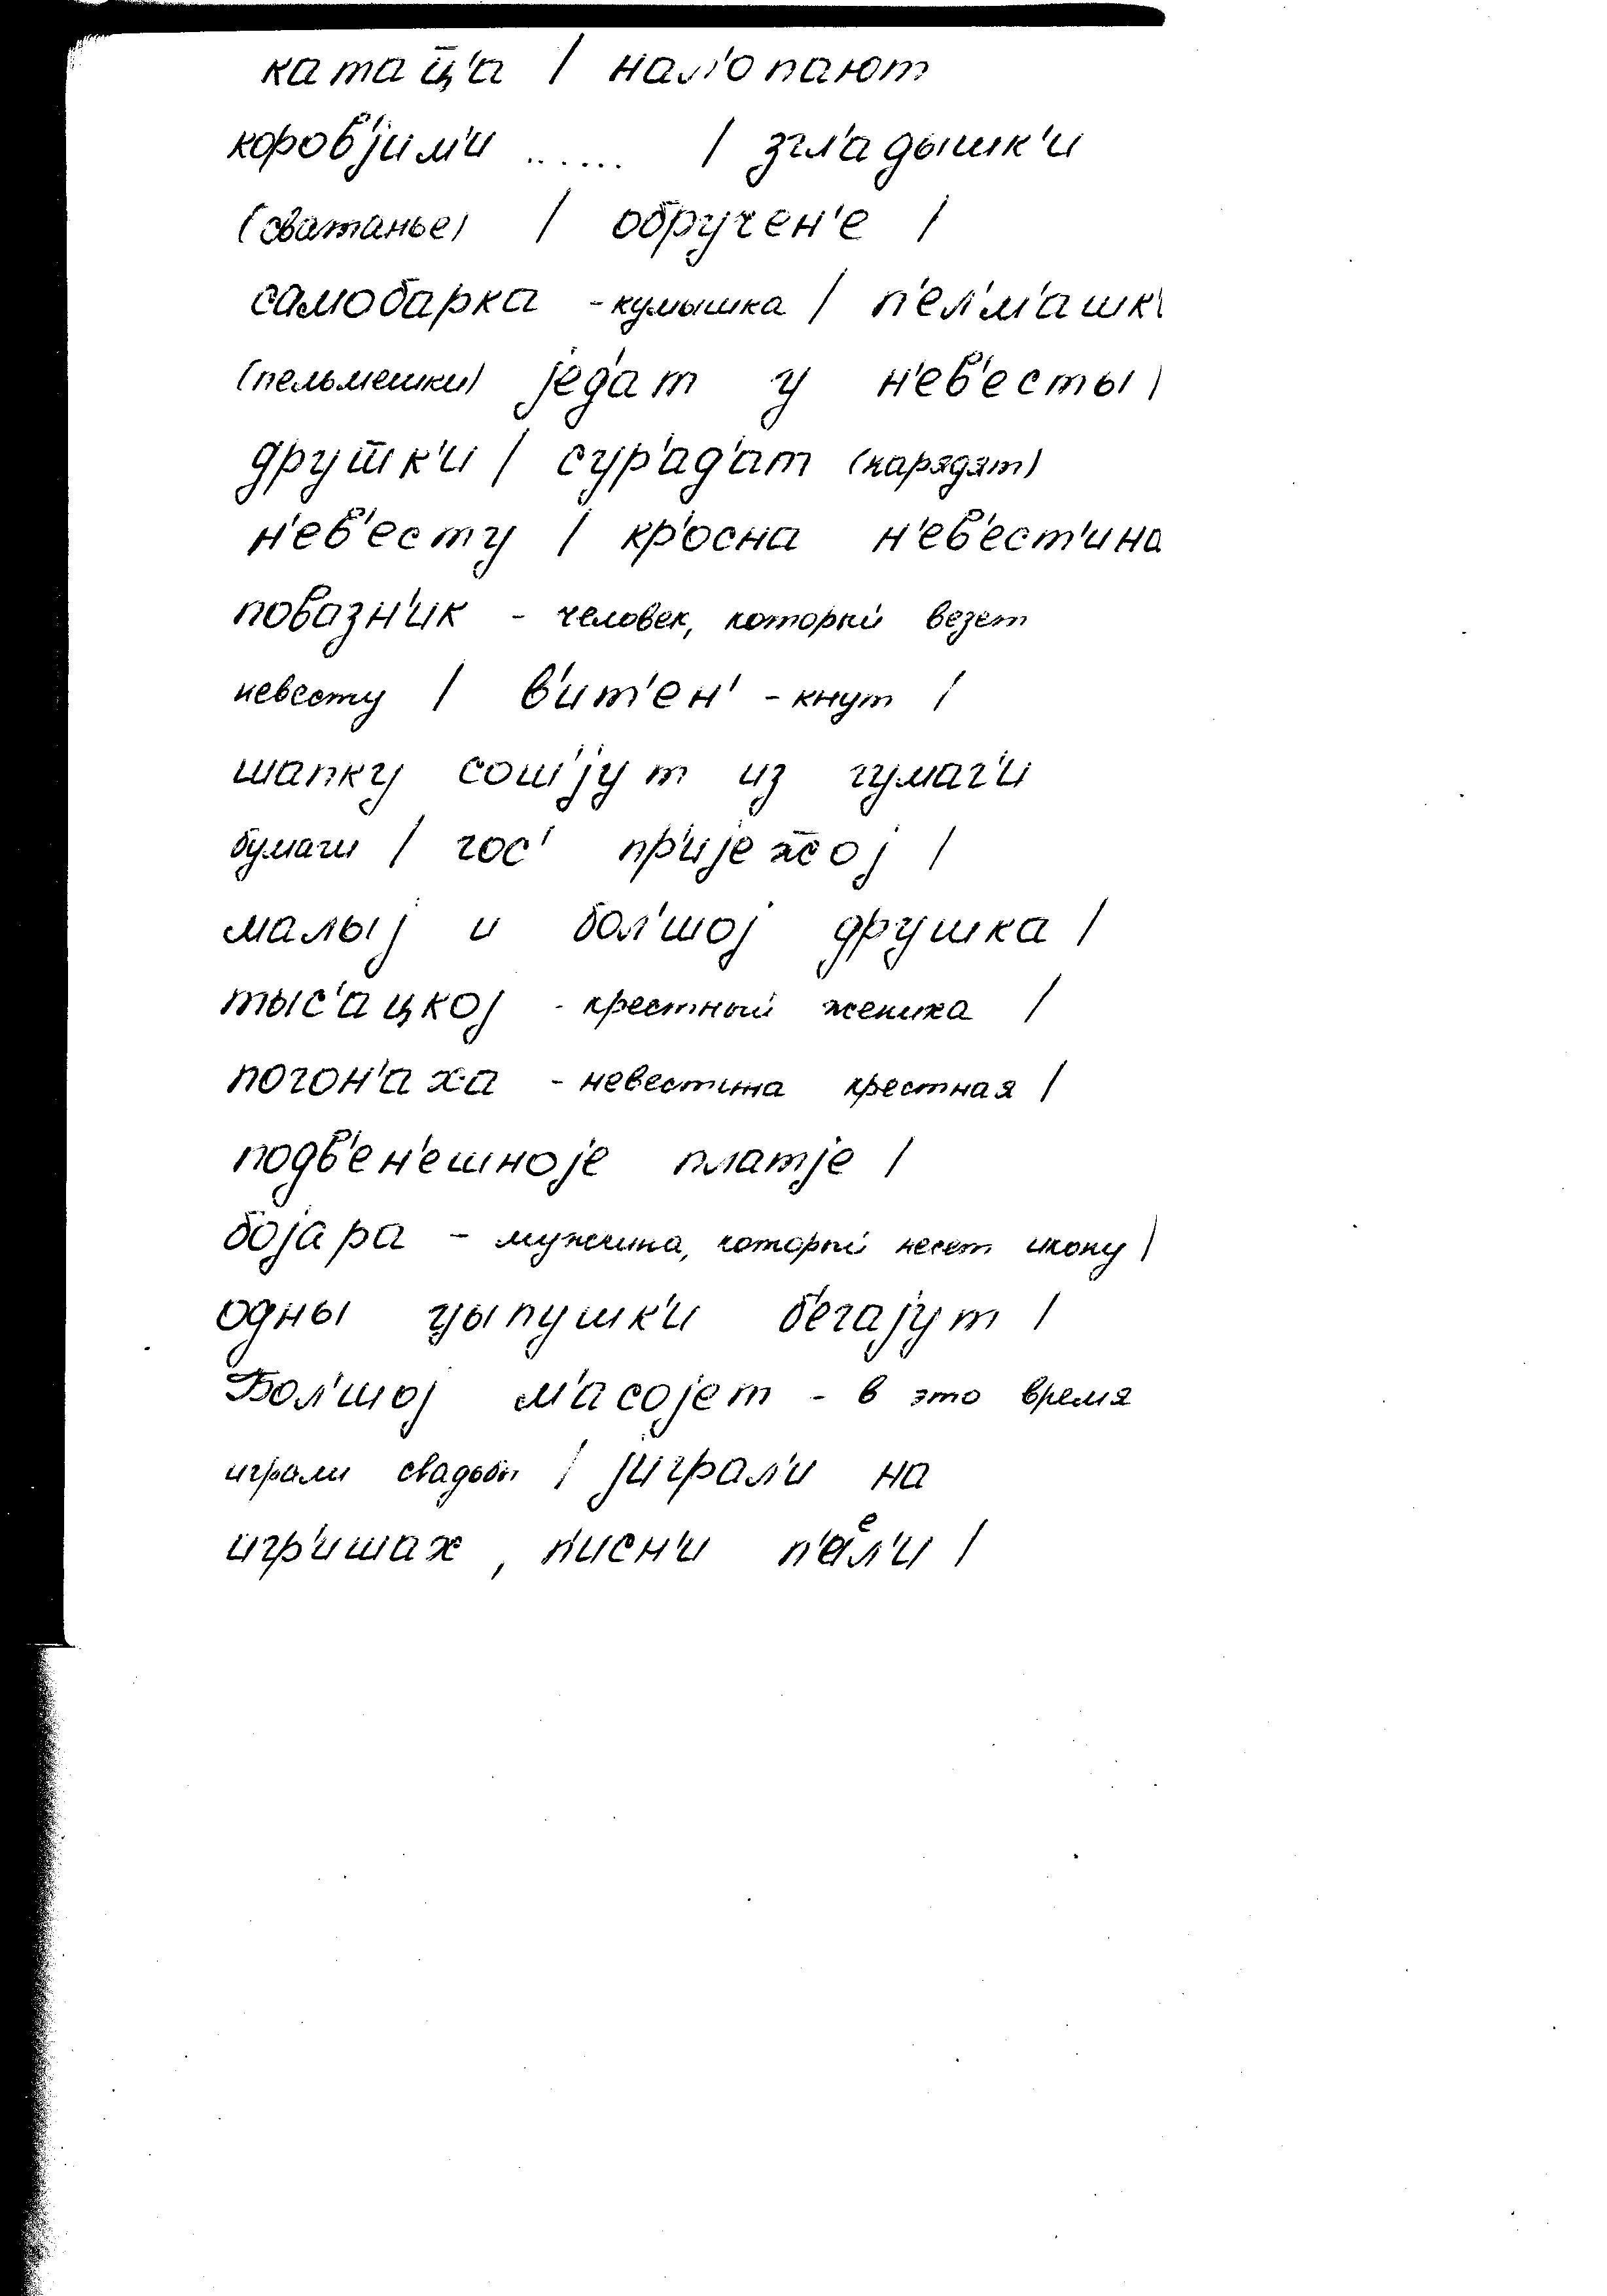 катац̄'а / нал'опают
коров'jим'и ...... / згл'адышк'и
(сватанье) / обручен'е /
самобарка - кумышка / п'ел'м'ашк'
(пельмешки) jед'ат у н'ев'есты /
друш̄к'и / сур'ад'ат (нарядят)
н'ев'есту / кр'осна н'ев'ест'ина
повозн'ик - человек, который везет
невесту / в'ит'ен' - кнут /
шапку сошjут из гумаг'и
бумаги / гос' пр'иjеж̄оj /
малыj и бол'шоj друшка /
тыс'ацкоj - крестный жениха /
погон'аха - невестина крестная /
подв'ен'ешноjе платjе /
боjара - мужчина, который несет икону /
одны цыпушк'и б'егаjут /
Бол'шоj м'асоjет - в это время
играли свадьбы / jиграл'и на
игр'ишах, п'исн'и п'ел'и /